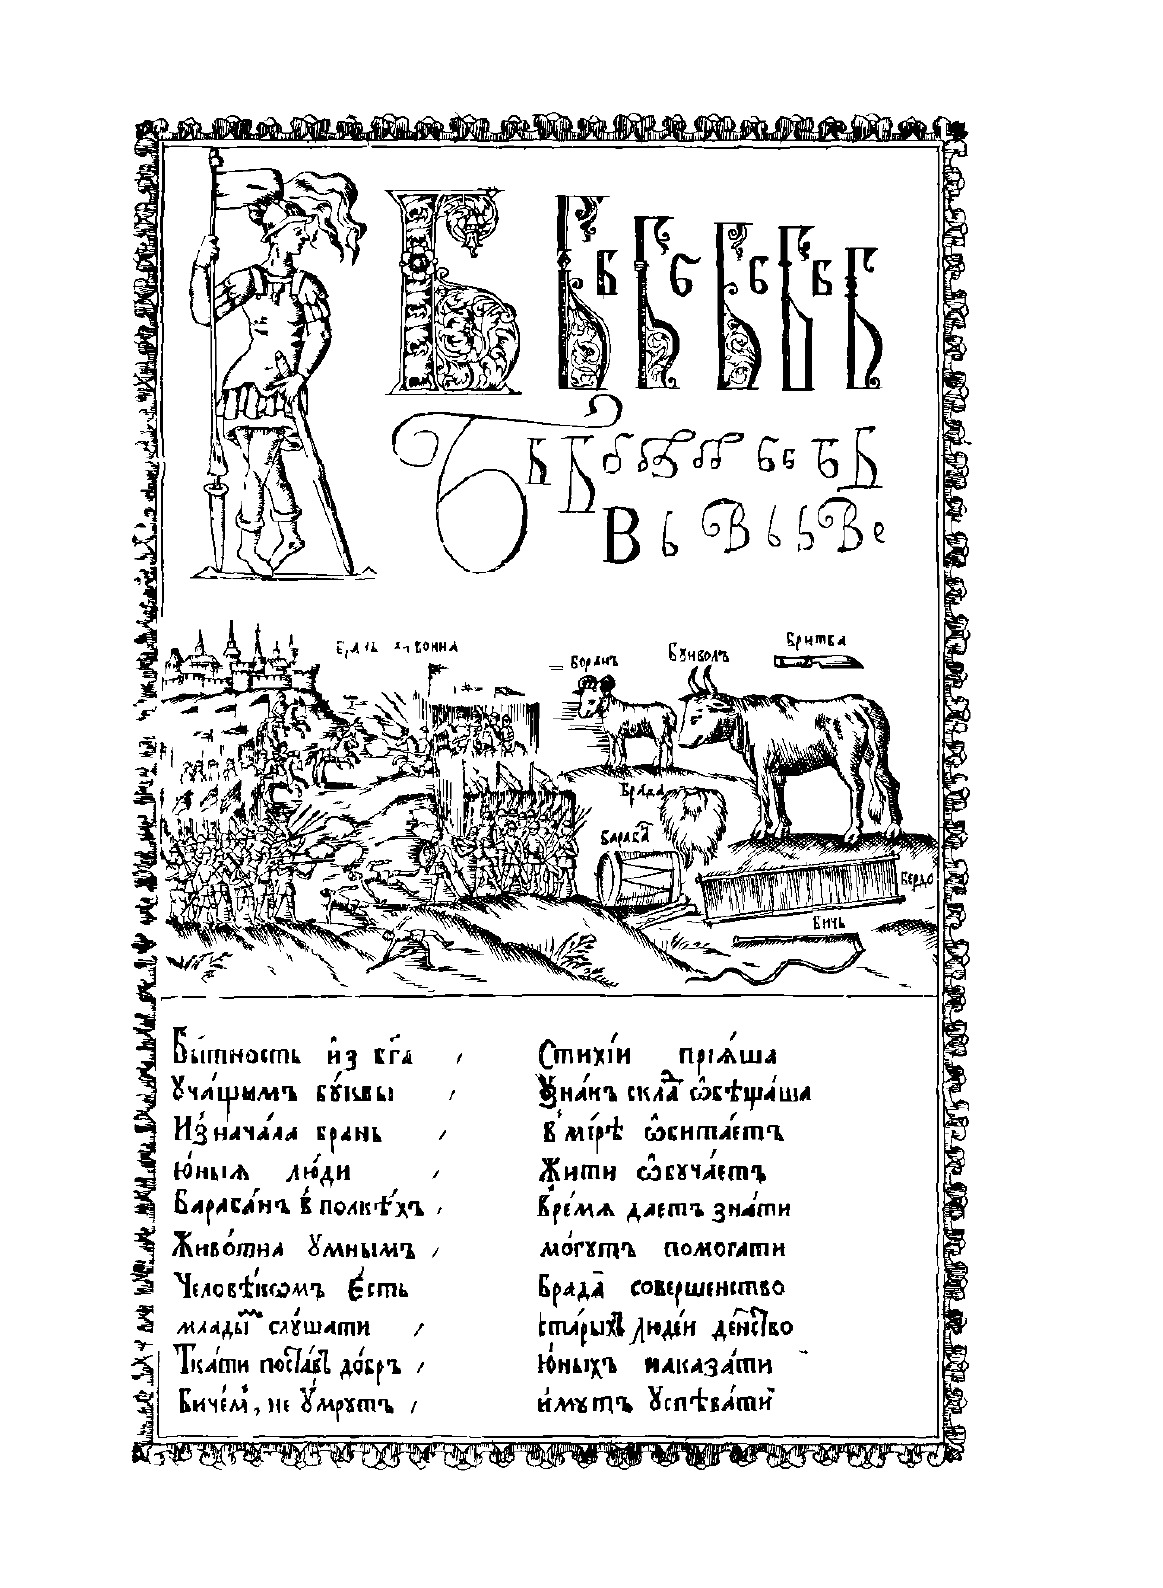 Б
Б б Б б Б б Б б Б
Бритва
Боранъ Буволъ
Брада
Бараба
Бердо
Бичь
Бы́тность и҆з̾ бг҃а , Стихі́и прїѧ́ша
Ꙋча́щымъ бꙋ́квы , Зна́къ скла ѡ҆бѣща́ша
И҆знача́ла брань , в̾ мі́рѣ ѡ҆бита́етъ
ю҆́ныѧ лю́ди , Жити ѡ҆бꙋча́етъ
Бараба́нъ в̾ полкѣ́хъ , вре́мѧ даетъ зна́ти
Живо́тна ꙋмнымъ , мо́гꙋтъ помогати
Человѣ́комъ є҆́сть Брада совершенство
млады слꙋ́шати , ста́рыхъ люде́й
Тка́ти поста́въ до́бръ , ю҆́ныхъ наказа́ти
Биче́мъ, не ꙋ҆́мрꙋтъ , и҆́мꙋтъ ꙋспѣва́ти